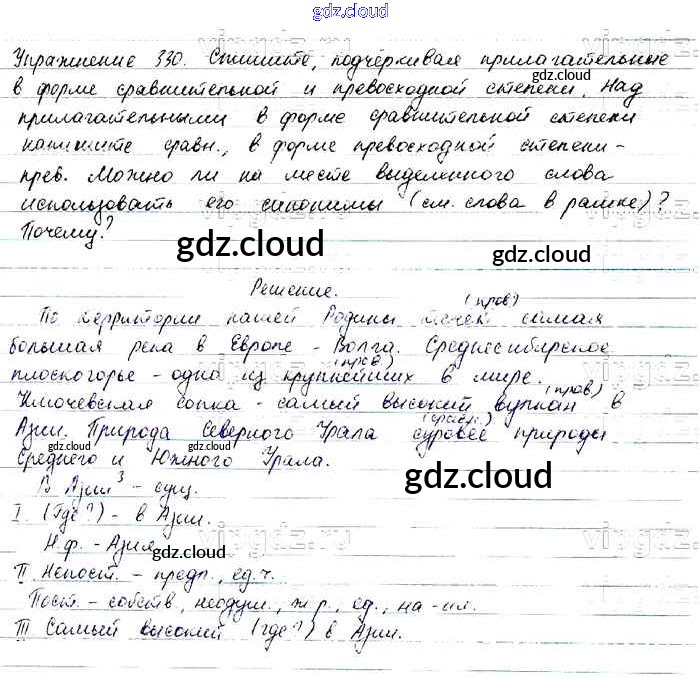 gdz.cloud
Упражнение 330. Спишите, подчёркивая прилагательные
gdz.cloud
в форме сравнительной и превосходной степени. Над
прилагательными в форме сравнительной степени
напишите сравн., в форме превосходной степени -
прев. Можно ли на месте выделенного слова
использовать его синонимы (см. слова в рамке)?
Почему?
gdz.cloud
gdz.cloud
Решение.
(прев)
По территории нашей Родины течёт самая
большая река в Европе - Волга. Среднесибирское
(прев)
плоскогорье - одно из крупнейших в мире.
(прев)
Ключевская сопка - самый высокий вулкан в
(сравн.)
Азии. Природа Северного Урала суровее природы
gdz.cloud
Среднего и Южного Урала.
gdz.cloud
В Азии³ - сущ.
I. (Где?) - в Азии.
Н.ф. - Азия
gdz.cloud
II Непост. - предл., ед.ч.
gdz.cloud
Пост. - собств, неодуш., ж.р., ед., на -ия.
III Самый высокий (где?) в Азии.
gdz.cloud